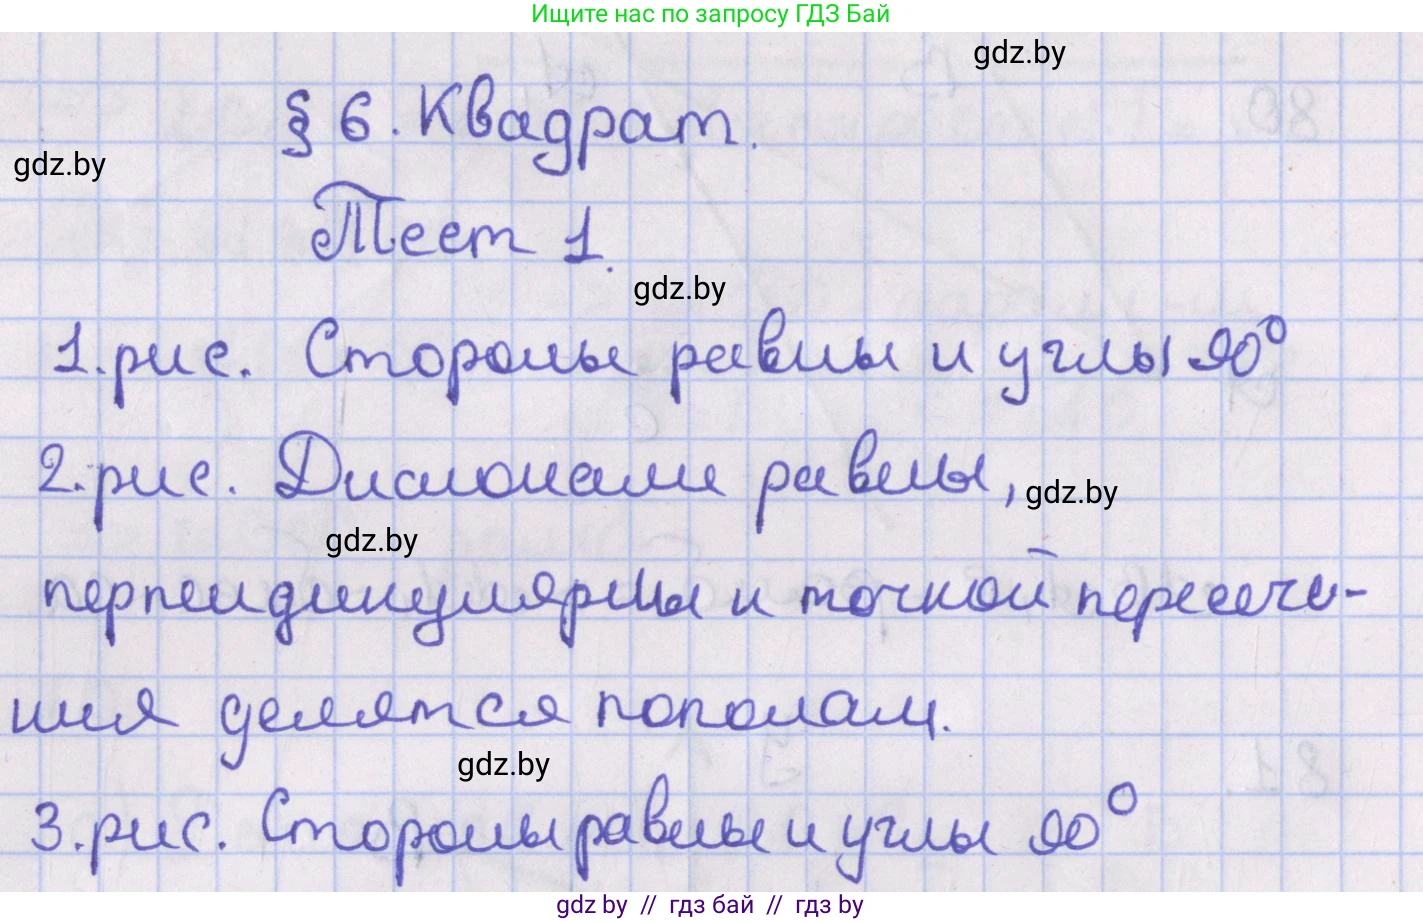 Ищите нас по запросу ГДЗ Бай
gdz.by
§ 6. Квадрат.
gdz.by
Тест 1.
gdz.by
1. рис. Стороны равны и углы 90°
2. рис. Диагонали равны,
gdz.by
gdz.by
перпендикулярны и точкой пересече-
ния делятся пополам.
gdz.by
3. рис. Стороны равны и углы 90°
gdz by // гдз бай // гдз by